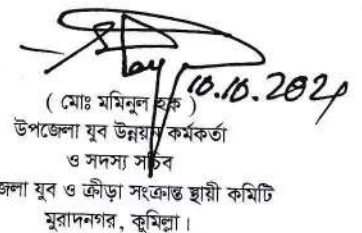 10.10.202
( মোঃ মমিনুল হক )
উপজেলা যুব উন্নয়ন কর্মকর্তা
ও সদস্য সচিব
জেলা যুব ও ক্রীড়া সংক্রান্ত স্থায়ী কমিটি
মুরাদনগর, কুমিল্লা।